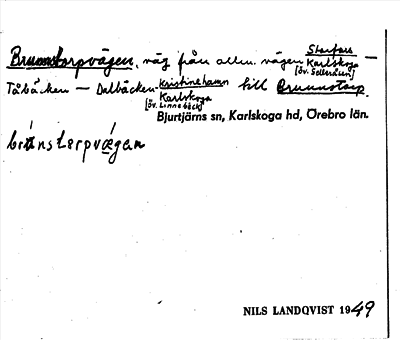 Brunnstorpvägen, väg från allm. vägen Storfors
Karlskoga —
[öv. Selleråsen]
Tåbäcken — Dalbäcken Kristinehamn till Brunnstorp.
Karlskoga
[öv. Linnebäck]
Bjurtjärns sn, Karlskoga hd, Örebro län.
brúnstɛrpvǽgan
NILS LANDQVIST 1949